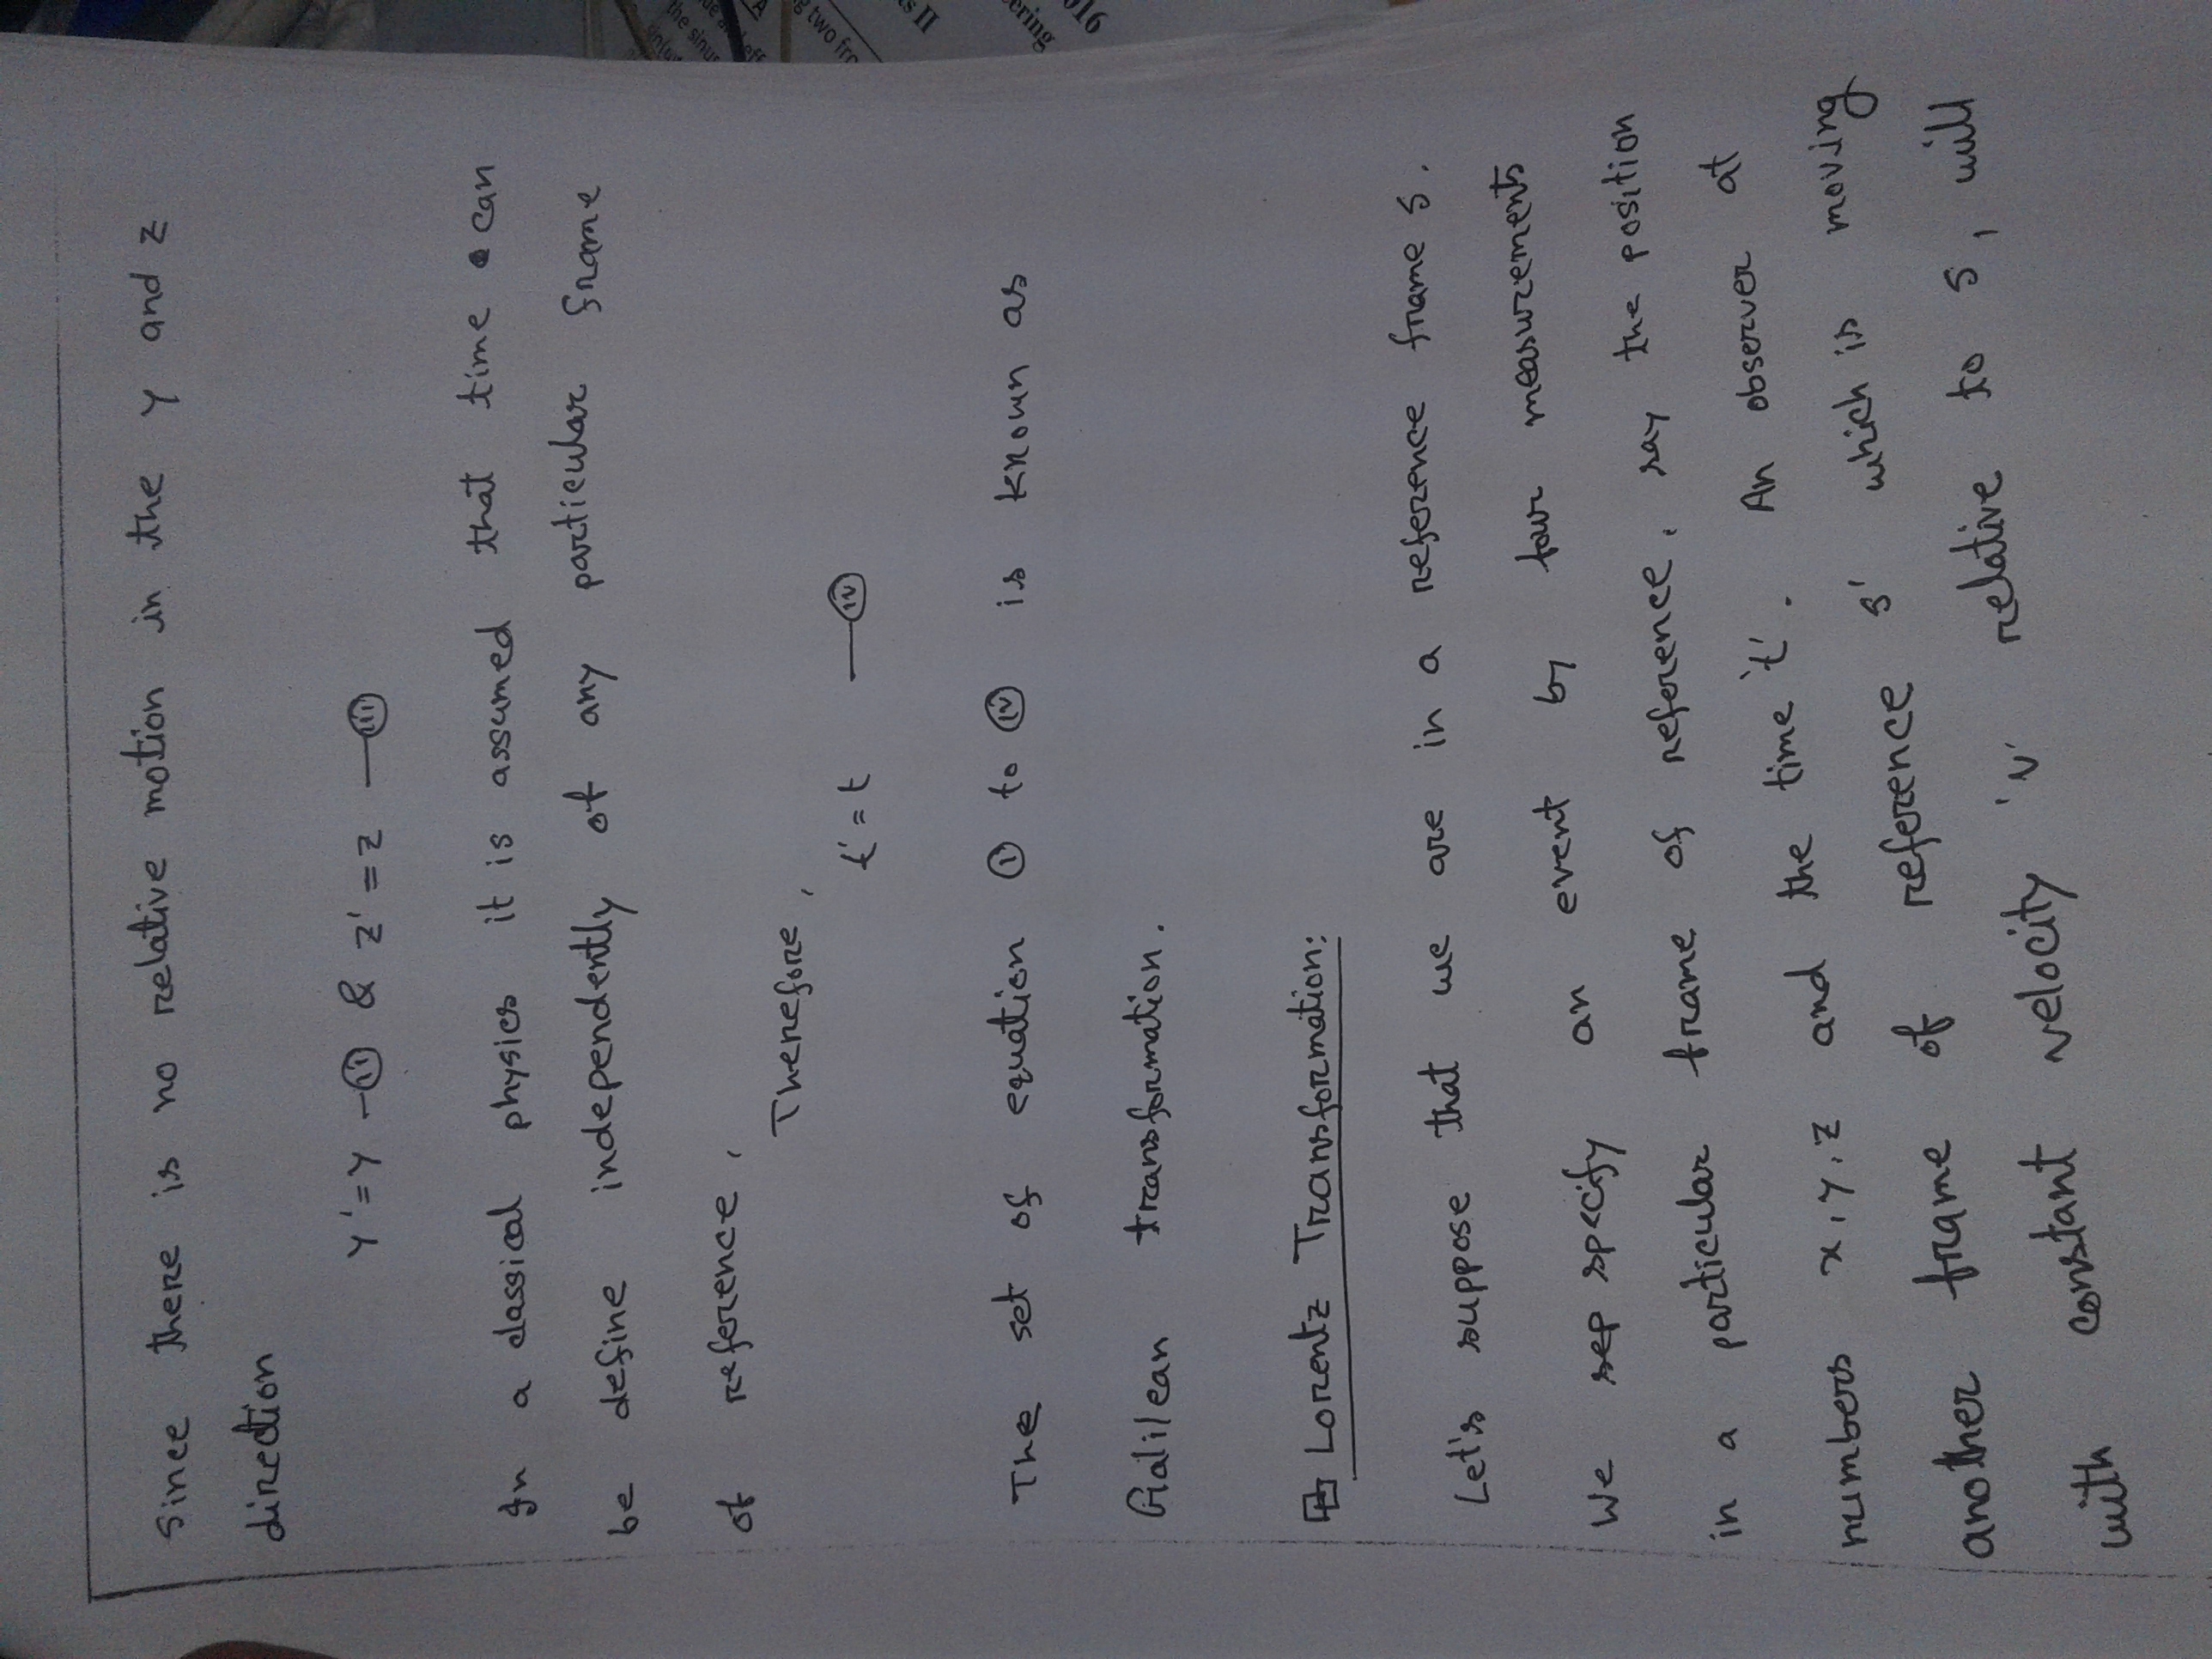 Since there is no relative motion in the y and z
direction
y'=y -(ii) & z'=z -(iii)
In a classical physics it is assumed that time can
be define independently of any particular frame
of reference,
Therefore,
t'=t -(iv)
The set of equation (i) to (iv) is known as
Galilean transformation.
Lorentz Transformation:
Let's suppose that we are in a reference frame s.
We sep specify an event by four measurements
in a particular frame of reference, say the position
numbers x,y,z and the time 't'. An observer at
another frame of reference s' which is moving
with constant velocity 'v' relative to s, will
the sinu
two fr
ts II
ering
016